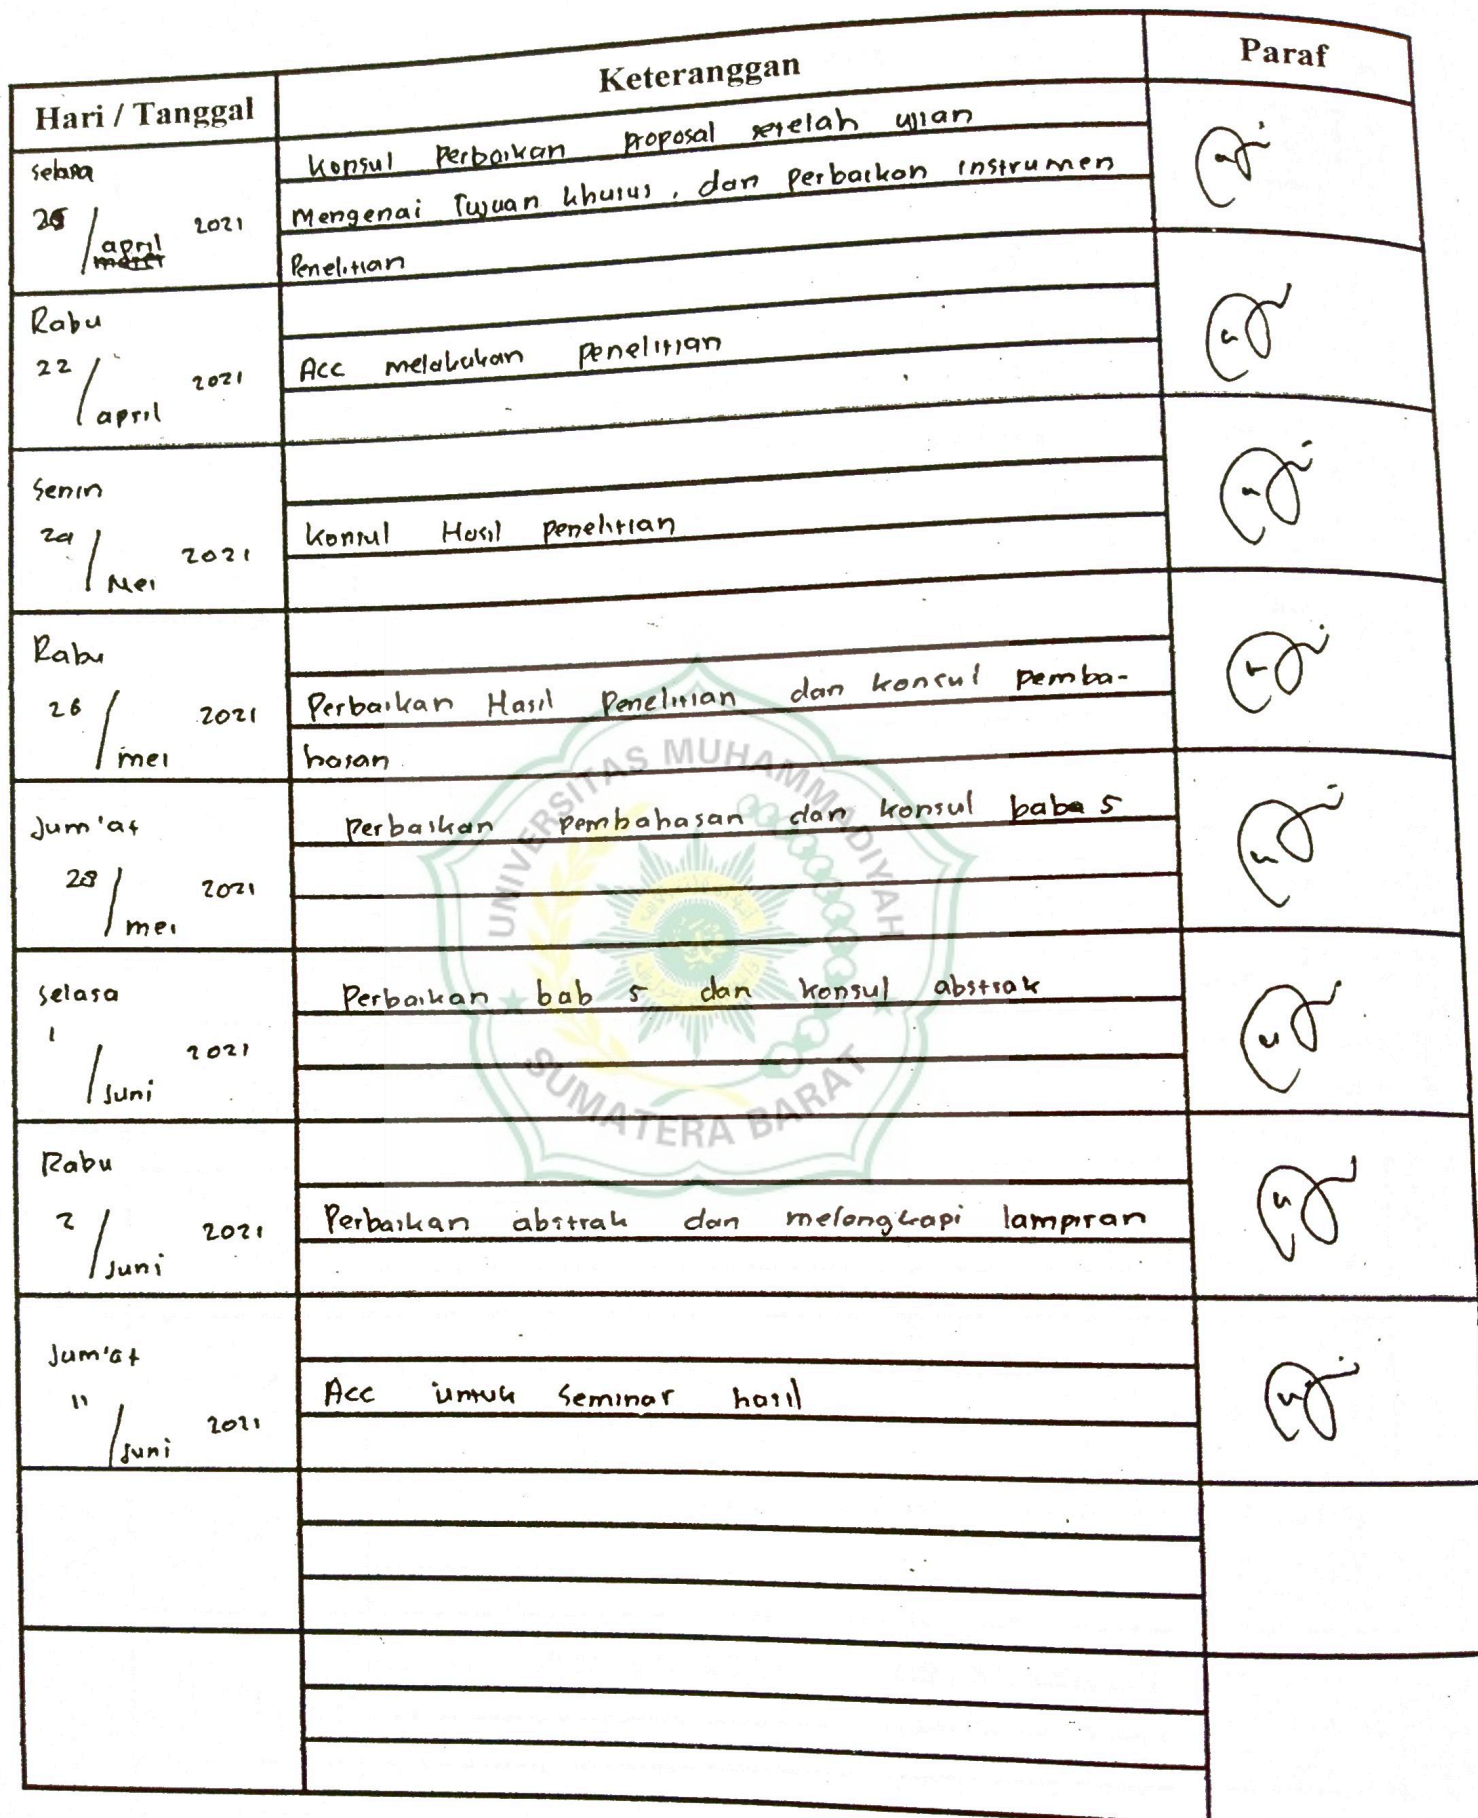 Hari / Tanggal Keteranggan Paraf
Selasa
april 2021
maret
Konsul Perbaikan proposal setelah ujian
Mengenai Tujuan khusus, dan perbaikan instrumen
Penelitian
Rabu
22 / april 2021
Acc melakukan penelitian
Senin
24 / Mei 2021
Konsul Hasil penelitian
Rabu
26 / mei 2021
Perbaikan Hasil Penelitian dan konsul pemba-
hasan
Jum'at
28 / mei 2021
Perbaikan pembahasan dan konsul bab 5
Selasa
1 / Juni 2021
Perbaikan bab 5 dan konsul abstrak
Rabu
2 / Juni 2021
Perbaikan abstrak dan melengkapi lampiran
Jum'at
11 / Juni 2021
Acc untuk seminar hasil
UNIVERSITAS MUHAMMADIYAH
SUMATERA BARAT